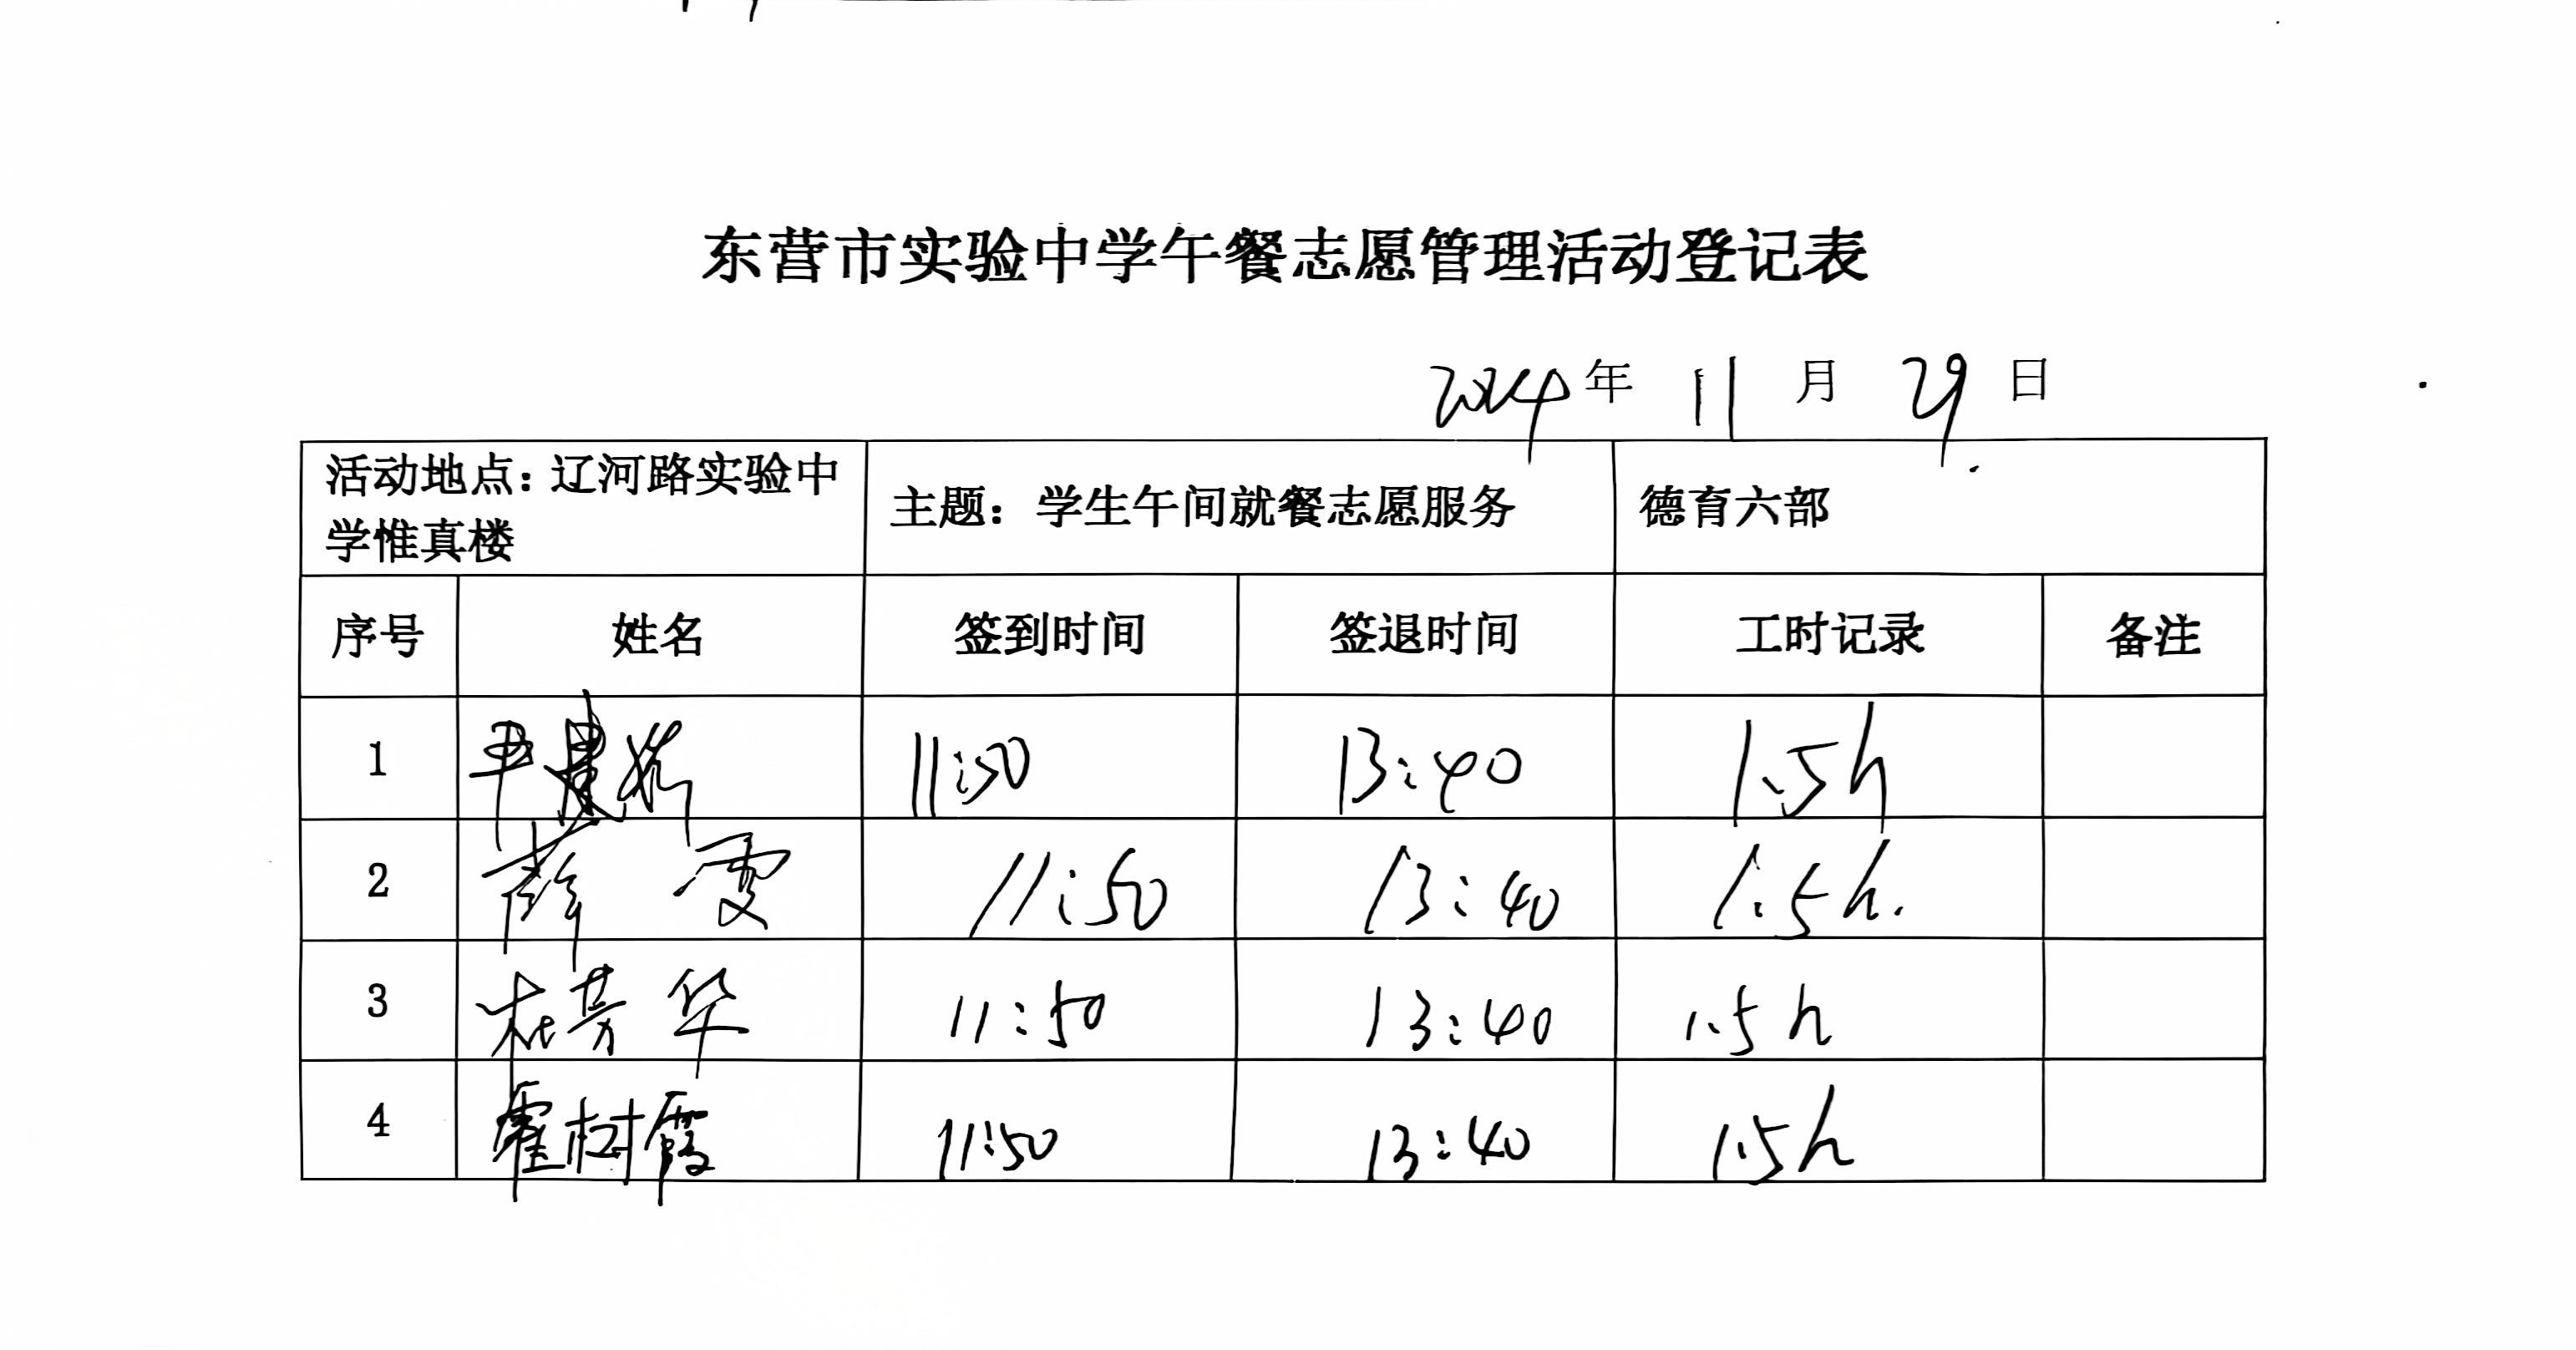 东营市实验中学午餐志愿管理活动登记表
2024年 11月 29日
活动地点：辽河路实验中
学惟真楼
主题：学生午间就餐志愿服务
德育六部
序号 姓名 签到时间 签退时间 工时记录 备注
1 11:50 13:40 1.5h
2 薛雯 11:50 13:40 1.5h.
3 杜芳华 11:50 13:40 1.5h
4 霍树霞 11:50 13:40 1.5h